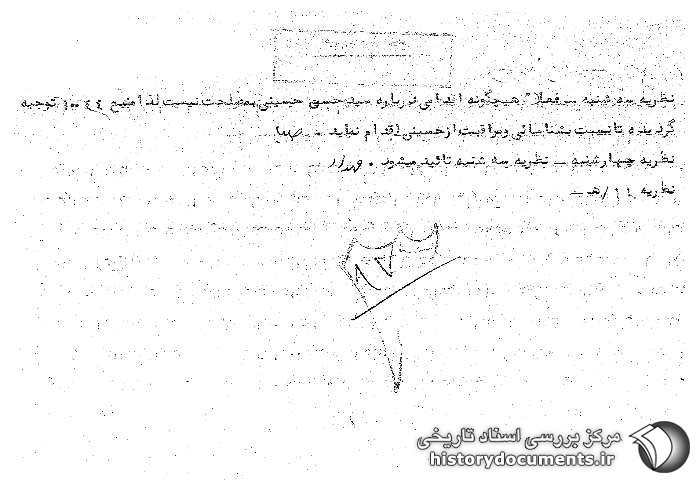 نظریه سه شنبه ــ فعلا" هیچگونه اقدامی درباره سید حسن حسینی بمصلحت نیست لذا منبع توجیه
گردیده تا نسبت بشناسائی و مراقبت از حسینی اقدام نماید .
نظریه چهارشنبه ــ نظریه سه شنبه تائید میشود .
نظریه ۱۱/هـ ــ
مرکز بررسی اسناد تاریخی
historydocuments.ir